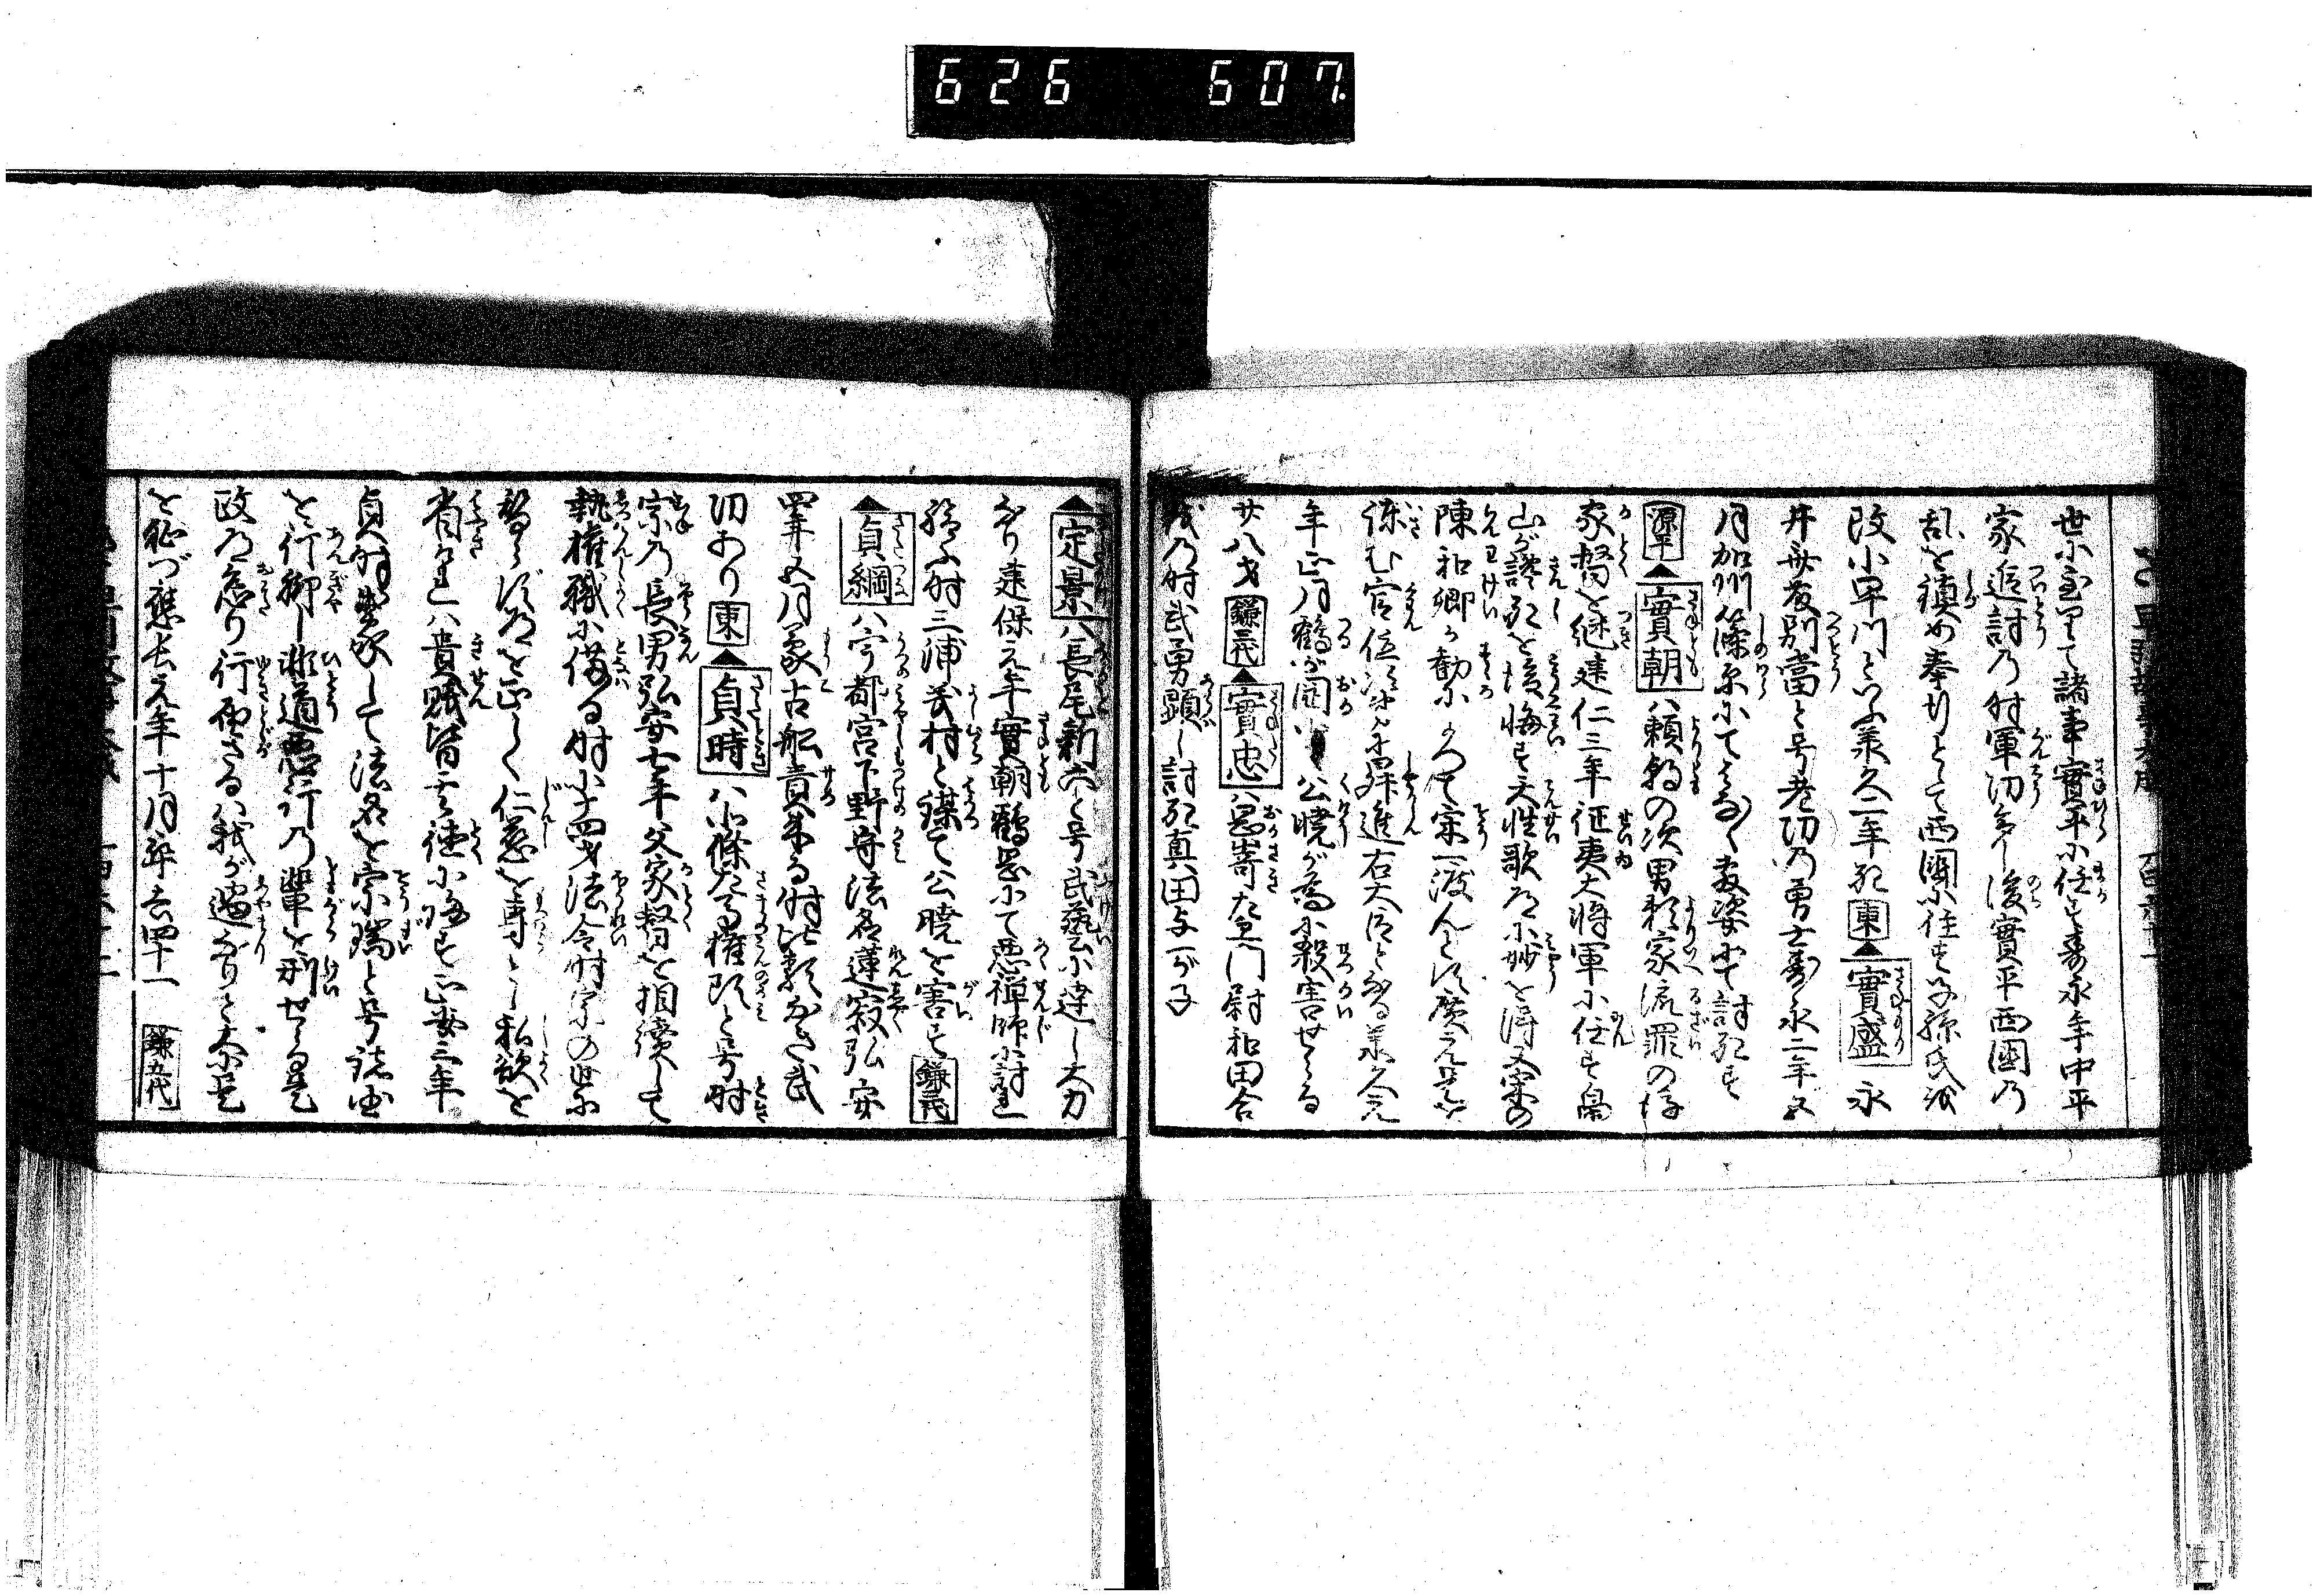 626 607
世に至りて諸事實平に任す寿永年中平
家追討の時軍功多し後實平西國の
乱を鎮め奉行として西國に住す子孫氏を
改小早川といふ承久二年死 東 ▲實盛 永
井斉藤別當と号老功の勇士寿永二年五
月加州篠原にて
討死す
源平 ▲實朝 ハ頼朝の次男頼家流罪の後
家督を継建仁三年征夷大将軍に任す畠
山が讒死を後悔す天性歌道に妙を得又宋の
陳和卿が勧によつて宋へ渡んとす廣元是を
諫む官位
昇進右大臣となる承久元
年正月鶴が岡にて公暁が為に殺害せらる
廿八才 鎌三代 ▲實忠 ハ岡嵜左衛門尉和田合
戦の時武勇顕し討死真田与一が子
▲定景 ハ長尾新六と号武藝に達し大力
なり建保元年實朝鶴岡にて悪禅師に討れ
給ふ時三浦義村と謀て公暁を害す 鎌三代
▲貞綱 ハ宇都宮下野守法名蓮寂弘安
四年五月蒙古舩責来る時比類なき武
功あり 東 ▲貞時 ハ北條左馬権頭と号時
宗の長男弘安七年父家督を相續して
執権職に備る時に十四才法令時宗の世に
替らず道を正しく仁慈を専とし私欲を
省かれハ貴賤皆其徳に帰す正安三年
貞時出家して法名を宗瑞と号諸国
を行脚し非道悪行の輩を刑せらる是
政道の怠り行届さるハ我が過なりと大に是
を恥づ應長元年十月卒去四十一 鎌五代